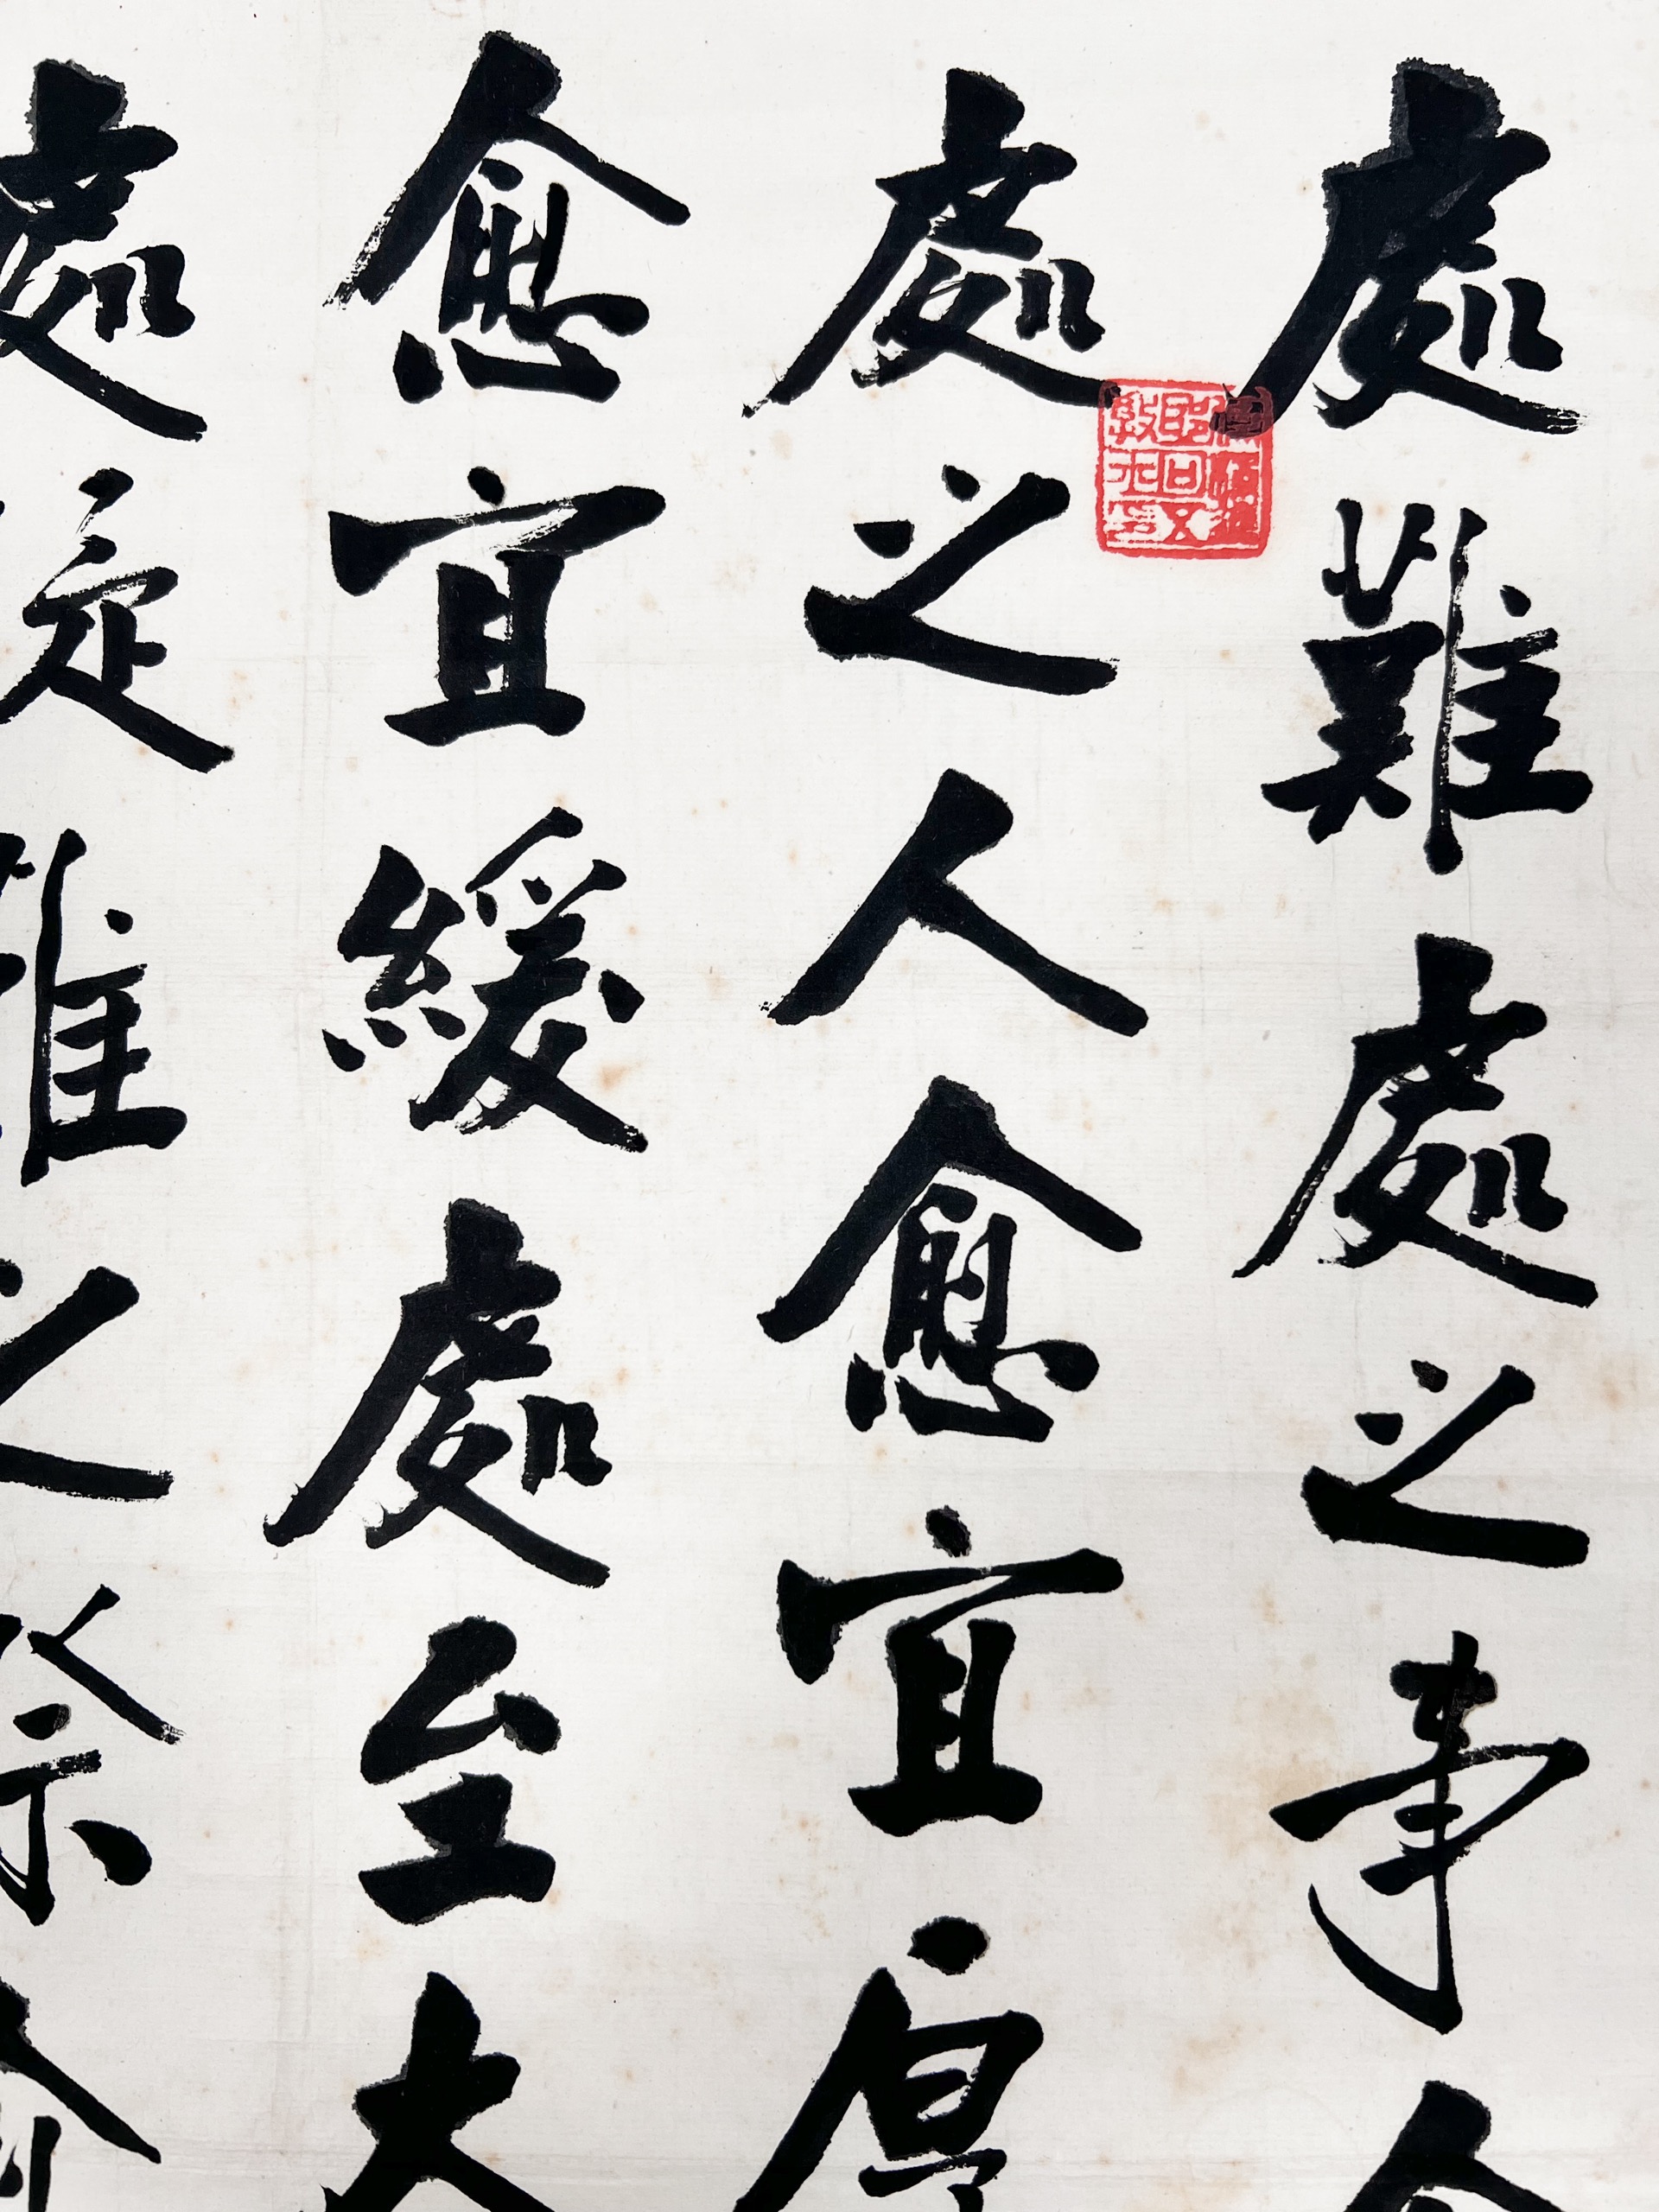 處難處之事
處之人愈宜厚
愈宜緩處至大
處疑難之際